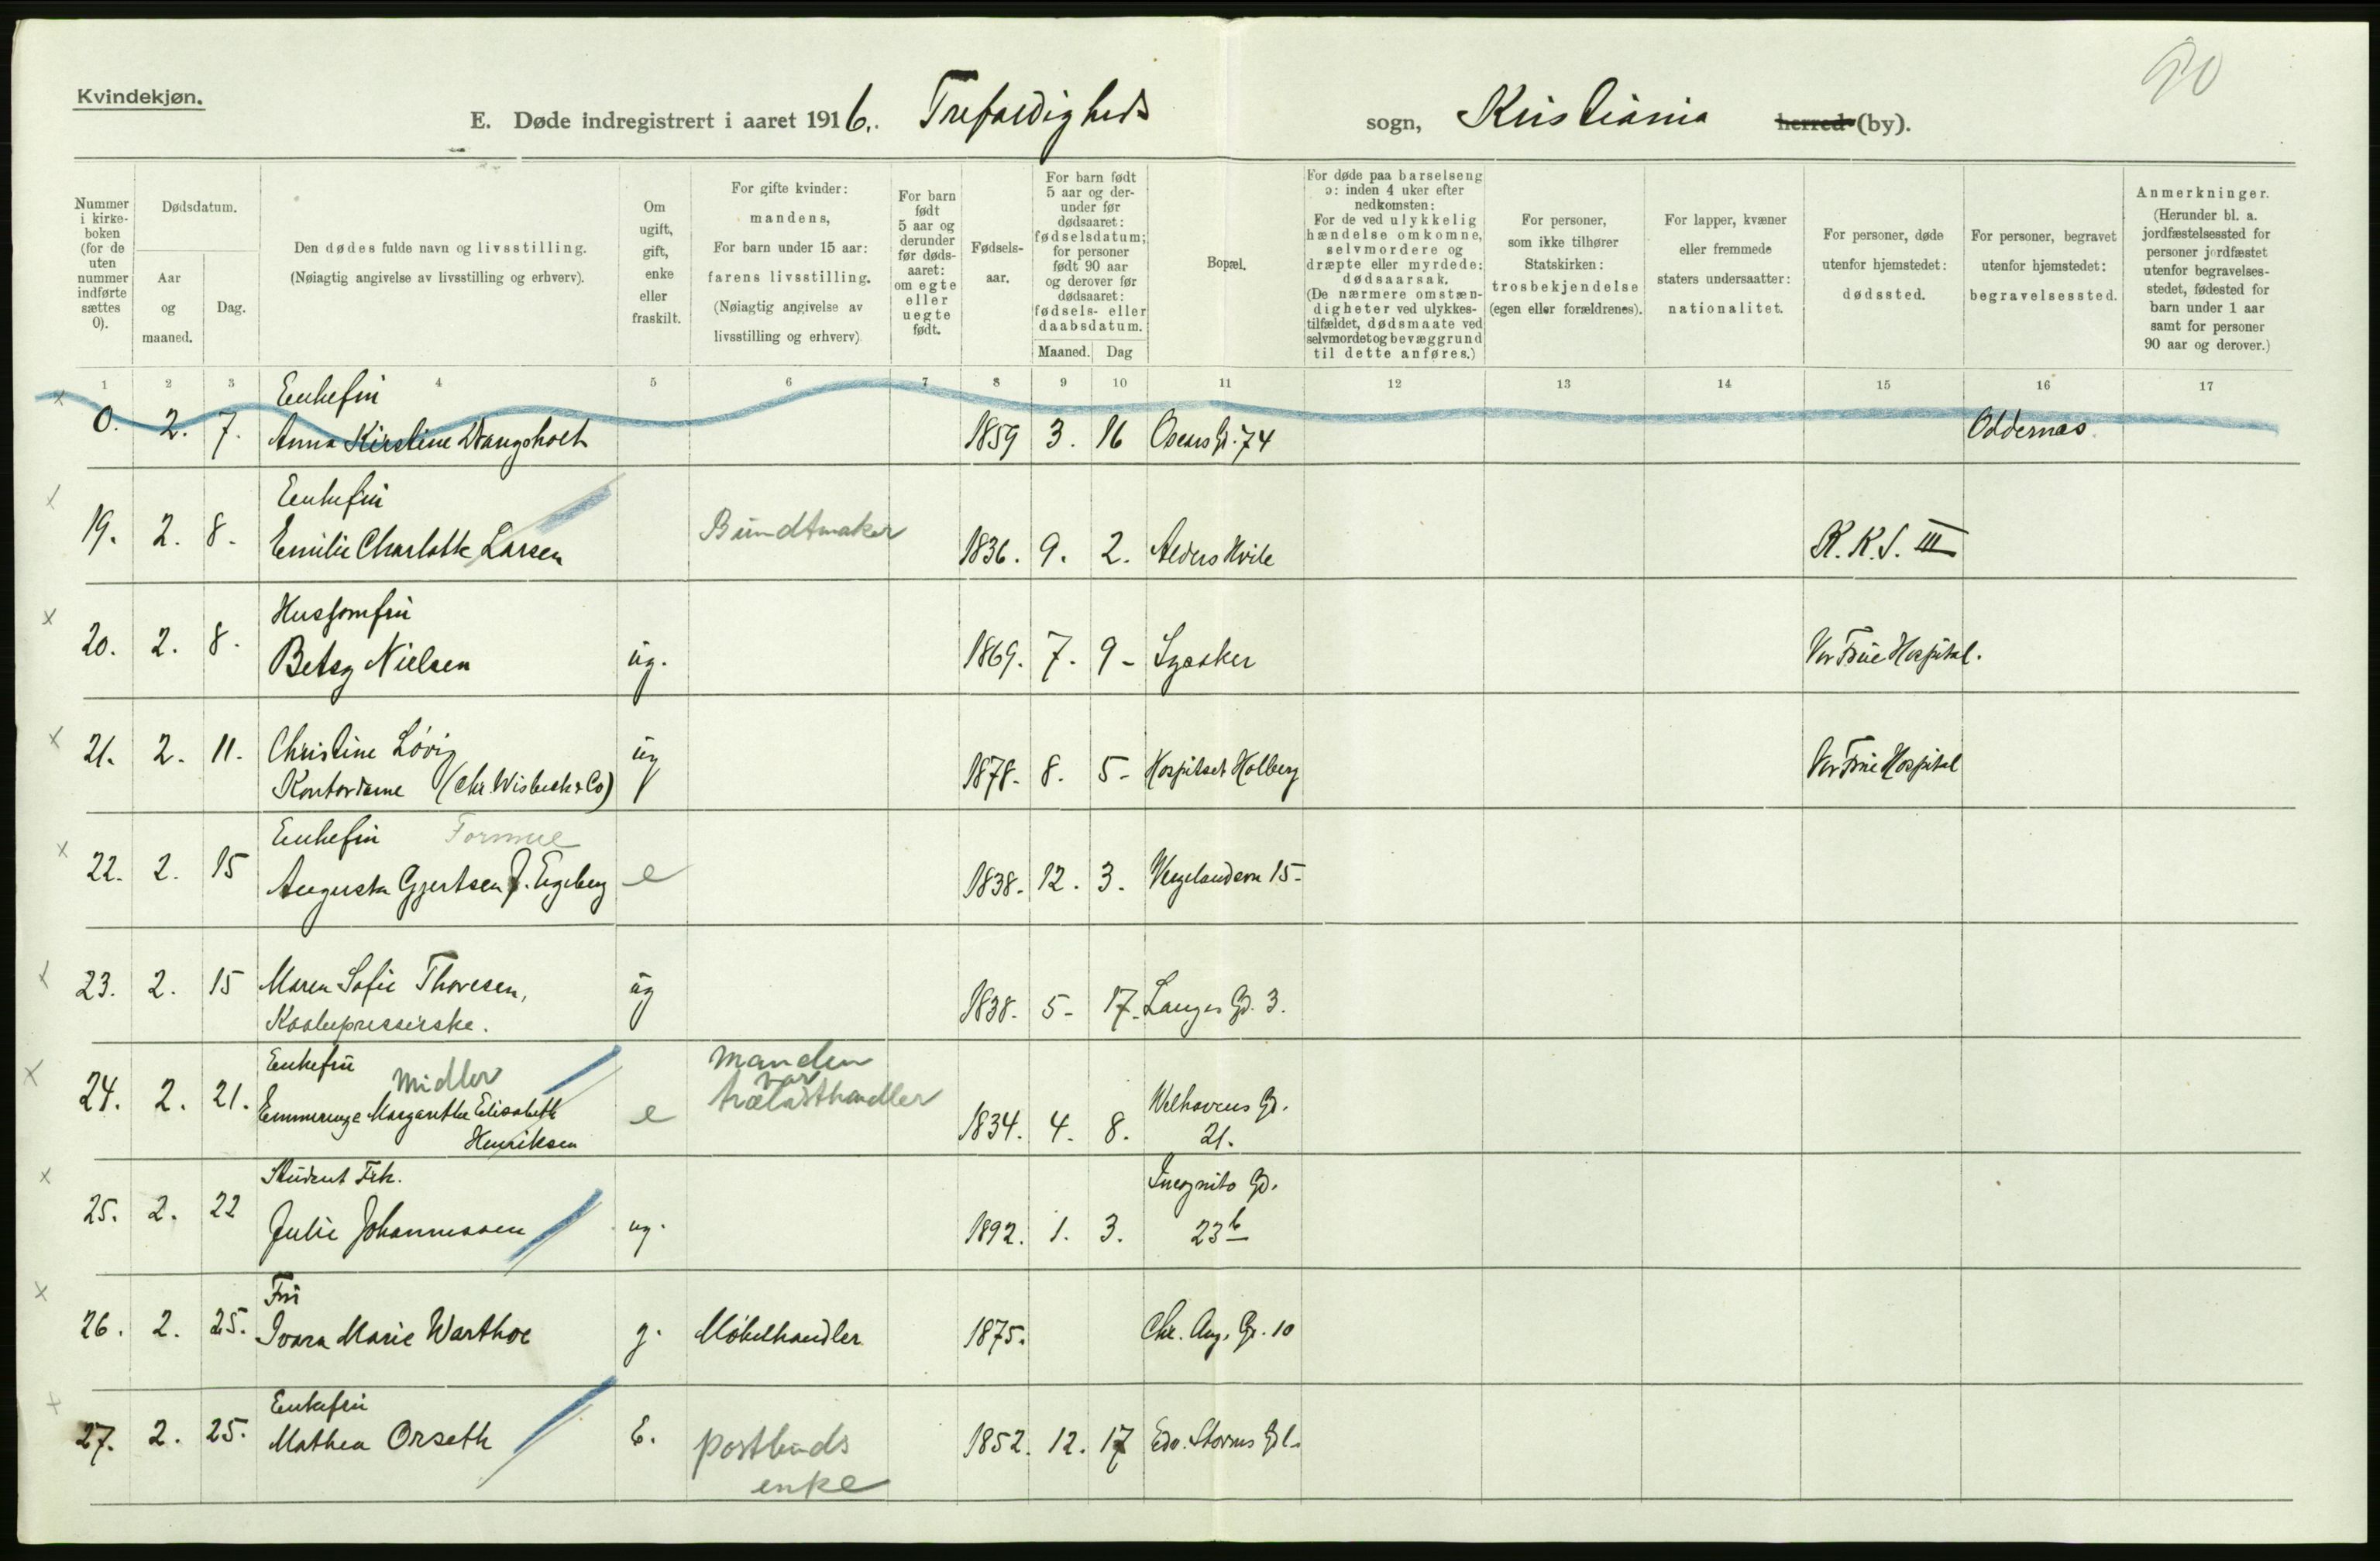 90
Kvindekjøn.
E. Døde indregistrert i aaret 1916. Trefoldigheds sogn, Kristiania herred (by).
Nummer i kirke-boken (for de uten nummer indførte sættes 0).
Dødsdatum.
Aar og maaned.
Dag.
Den dødes fulde navn og livsstilling.
(Nøiagtig angivelse av livsstilling og erhverv).
Om ugift, gift, enke eller fraskilt.
For gifte kvinder: mandens,
For barn under 15 aar: farens livsstilling.
(Nøiagtig angivelse av livsstilling og erhverv)
For barn født 5 aar og derunder før døds-aaret: om egte eller uegte født.
Fødsels-aar.
For barn født 5 aar og der-under før dødsaaret: fødselsdatum; for personer født 90 aar og derover før dødsaaret: fødsels- eller daabsdatum.
Maaned. Dag
Bopæl.
For døde paa barselseng ɔ: inden 4 uker efter nedkomsten:
For de ved ulykkelig hændelse omkomne, selvmordere og dræpte eller myrdede: dødsaarsak.
(De nærmere omstæn-digheter ved ulykkes-tilfældet, dødsmaate ved selvmordet og bevæggrund til dette anføres.)
For personer, som ikke tilhører Statskirken: trosbekjendelse (egen eller forældrenes).
For lapper, kvæner eller fremmede staters undersaatter: nationalitet.
For personer, døde utenfor hjemstedet: dødssted.
For personer, begravet utenfor hjemstedet: begravelsessted.
Anmerkninger.
(Herunder bl. a. jordfæstelsessted for personer jordfæstet utenfor begravelses-stedet, fødested for barn under 1 aar samt for personer 90 aar og derover.)
1 2 3 4 5 6 7 8 9 10 11 12 13 14 15 16 17
Enkefrü
0. 2. 7. Anna Kirstine Wangsholt 1859 3. 16 Oscars Gd. 74 Oddernes.
Enkefrü
19. 2. 8. Emilie Charlotte Larsen Bundtmaker 1836. 9. 2. Alders Hvile K. K. S. III
Husjomfrü
20. 2. 8. Betsy Nielsen üg. 1869. 7. 9 - Lysaker Vor Frue Hospital.
21. 2. 11. Christine Løvig üg 1878. 8. 5 - Hospitset Holberg Vor Frue Hospital
Kontordame (Chr. Wisbech & Co)
Enkefrü Formue
22. 2. 15 Augusta Gjertsen f. Egeberg e 1838. 12. 3. Wergelandsvn 15-
23. 2. 15 Maren Sofie Thoresen, üg 1838. 5 - 17. Langes Gd. 3.
Kaabepresserske.
Enkefrü Midler manden var
24. 2. 21. Emmerenze Margarethe Elisabeth Henriksen e trælasthandler 1834. 4. 8. Welhavens Gd. 21.
Student Frk.
25. 2. 22 Julie Johannessen ug. 1892. 1. 3. Incognito Gd. 23 b
Frü
26. 2. 25. Ivara Marie Warthoe g. Møbelhandler 1875. Chr. Aug. Gd. 10
Enkefrü
27. 2. 25. Mathea Orseth E. postbuds enke 1852. 12. 17 Edv. Storms Gd 1.